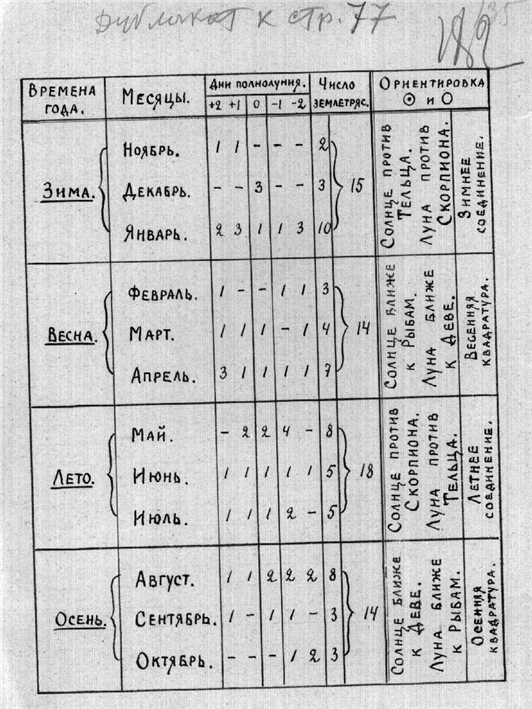 дубликат к стр. 77
ВРЕМЕНА ГОДА. МЕСЯЦЫ. ДНИ ПОЛНОЛУНИЯ. ЧИСЛО ЗЕМЛЕТРЯС. ОРИЕНТИРОВКА ☉ и ○
+2 +1 0 -1 -2
ЗИМА. НОЯБРЬ. 1 1 - - - 2
ДЕКАБРЬ. - - 3 - - 3 15
ЯНВАРЬ. 2 3 1 1 3 10
СОЛНЦЕ ПРОТИВ
ТЕЛЬЦА.
ЛУНА ПРОТИВ
СКОРПИОНА.
ЗИМНЕЕ
СОЕДИНЕНИЕ.
ВЕСНА. ФЕВРАЛЬ. 1 - - 1 1 3
МАРТ. 1 1 1 - 1 4 14
АПРЕЛЬ. 3 1 1 1 1 7
СОЛНЦЕ БЛИЖЕ
К РЫБАМ.
ЛУНА БЛИЖЕ
К ДЕВЕ.
ВЕСЕННЯЯ
КВАДРАТУРА.
ЛЕТО. МАЙ. - 2 2 4 - 8
ИЮНЬ. 1 1 1 1 1 5 18
ИЮЛЬ. 1 1 1 2 - 5
СОЛНЦЕ ПРОТИВ
СКОРПИОНА.
ЛУНА ПРОТИВ
ТЕЛЬЦА.
ЛЕТНЕЕ
СОЕДИНЕНИЕ.
ОСЕНЬ. АВГУСТ. 1 1 2 2 2 8
СЕНТЯБРЬ. 1 - 1 1 - 3 14
ОКТЯБРЬ. - - - 1 2 3
СОЛНЦЕ БЛИЖЕ
К ДЕВЕ.
ЛУНА БЛИЖЕ
К РЫБАМ.
ОСЕННЯЯ
КВАДРАТУРА.